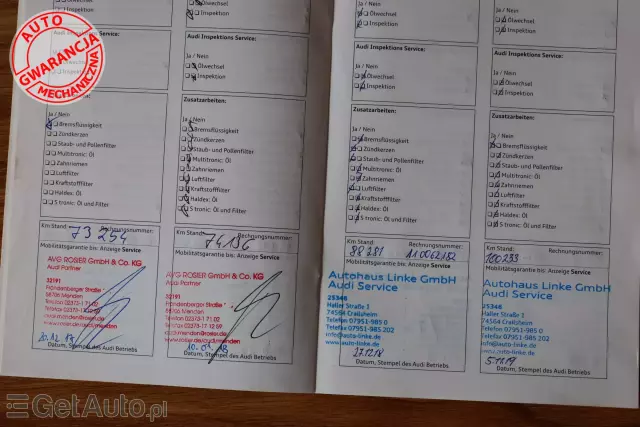 AUTO
GWARANCJA
MECHANICZNA
Audi Inspektions Service:
Ja / Nein
Ölwechsel
Inspektion
Zusatzarbeiten:
Ja / Nein
Bremsflüssigkeit
Zündkerzen
Staub- und Pollenfilter
Multitronic: Öl
Zahnriemen
Luftfilter
Kraftstofffilter
Haldex: Öl
S tronic: Öl und Filter
Km Stand: Rechnungsnummer:
73 254
Mobilitätsgarantie bis: Anzeige Service
AVG ROSIER GmbH & Co. KG
Audi Partner
32191
58706 Menden
Datum, Stempel des Audi Betriebs
Inspektion
Ja / Nein
Ölwechsel
Inspektion
Zusatzarbeiten:
Ja / Nein
Bremsflüssigkeit
Zündkerzen
Staub- und Pollenfilter
Multitronic: Öl
Zahnriemen
Luftfilter
Kraftstofffilter
Haldex: Öl
S tronic: Öl und Filter
Km Stand: Rechnungsnummer:
74 196
Mobilitätsgarantie bis: Anzeige Service
AVG ROSIER GmbH & Co. KG
Audi Partner
32191
58706 Menden
Datum, Stempel des Audi Betriebs
Ölwechsel
Inspektion
Audi Inspektions Service:
Ja / Nein
Ölwechsel
Inspektion
Zusatzarbeiten:
Ja / Nein
Bremsflüssigkeit
Zündkerzen
Staub- und Pollenfilter
Multitronic: Öl
Zahnriemen
Luftfilter
Kraftstofffilter
Haldex: Öl
S tronic: Öl und Filter
Km Stand: Rechnungsnummer:
88 281
Mobilitätsgarantie bis: Anzeige Service
Autohaus Linke GmbH
Audi Service
25346
Haller Straße 1
74564 Crailsheim
Telefon 07951-985 0
Telefax 07951-985 202
info@auto-linke.de
www.auto-linke.de
27.12.18
Datum, Stempel des Audi Betriebs
Ölwechsel
Inspektion
Audi Inspektions Service:
Ja / Nein
Ölwechsel
Inspektion
Zusatzarbeiten:
Ja / Nein
Bremsflüssigkeit
Zündkerzen
Staub- und Pollenfilter
Multitronic: Öl
Zahnriemen
Luftfilter
Kraftstofffilter
Haldex: Öl
S tronic: Öl und Filter
Km Stand: Rechnungsnummer:
100233
Mobilitätsgarantie bis: Anzeige Service
Autohaus Linke GmbH
Audi Service
25346
Haller Straße 1
74564 Crailsheim
Telefon 07951-985 0
Telefax 07951-985 202
info@auto-linke.de
www.auto-linke.de
Datum, Stempel des Audi Betriebs
GetAuto.pl